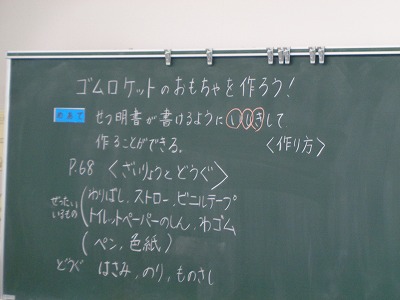 ゴムロケットのおもちゃを作ろう!
めあて せつ明書が書けるようにいしきして
作ることができる。 <作り方>
P.68 <ざいりょうとどうぐ>
ぜったいいるもの (わりばし、ストロー、ビニルテープ
トイレットペーパーのしん、わゴム
(ペン、色紙)
どうぐ はさみ、のり、ものさし